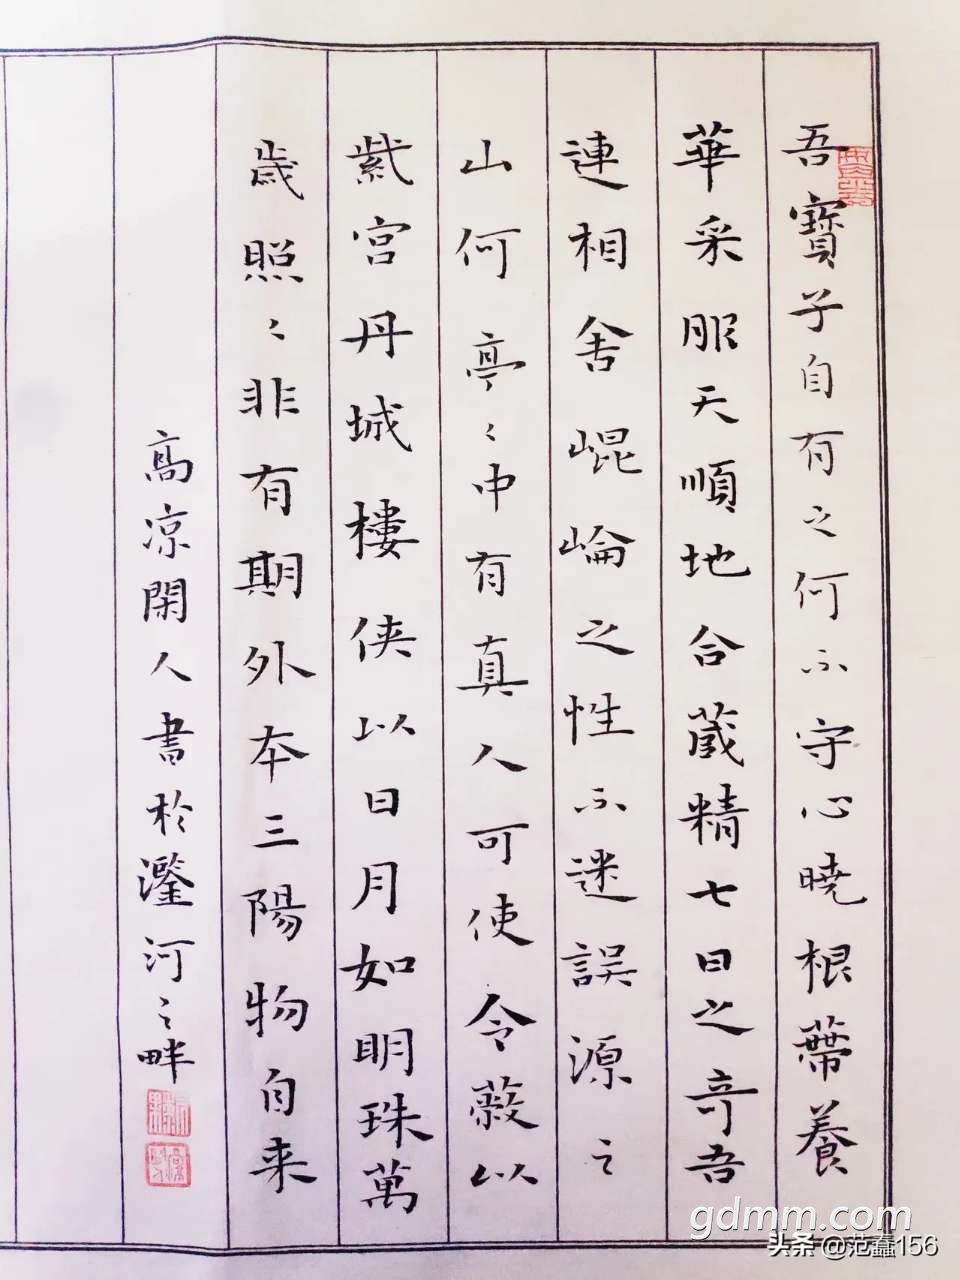 吾寶子自有之何不守心曉根蔕養
華采服天順地合藏精七日之奇吾
連相舍崐崘之性不迷誤源之
山何亭〻中有真人可使令蔽以
紫宫丹城樓俠以日月如明珠萬
歲照〻非有期外本三陽物自来
高涼閑人書於河之畔
gdmm.com
头条 @范蠡156